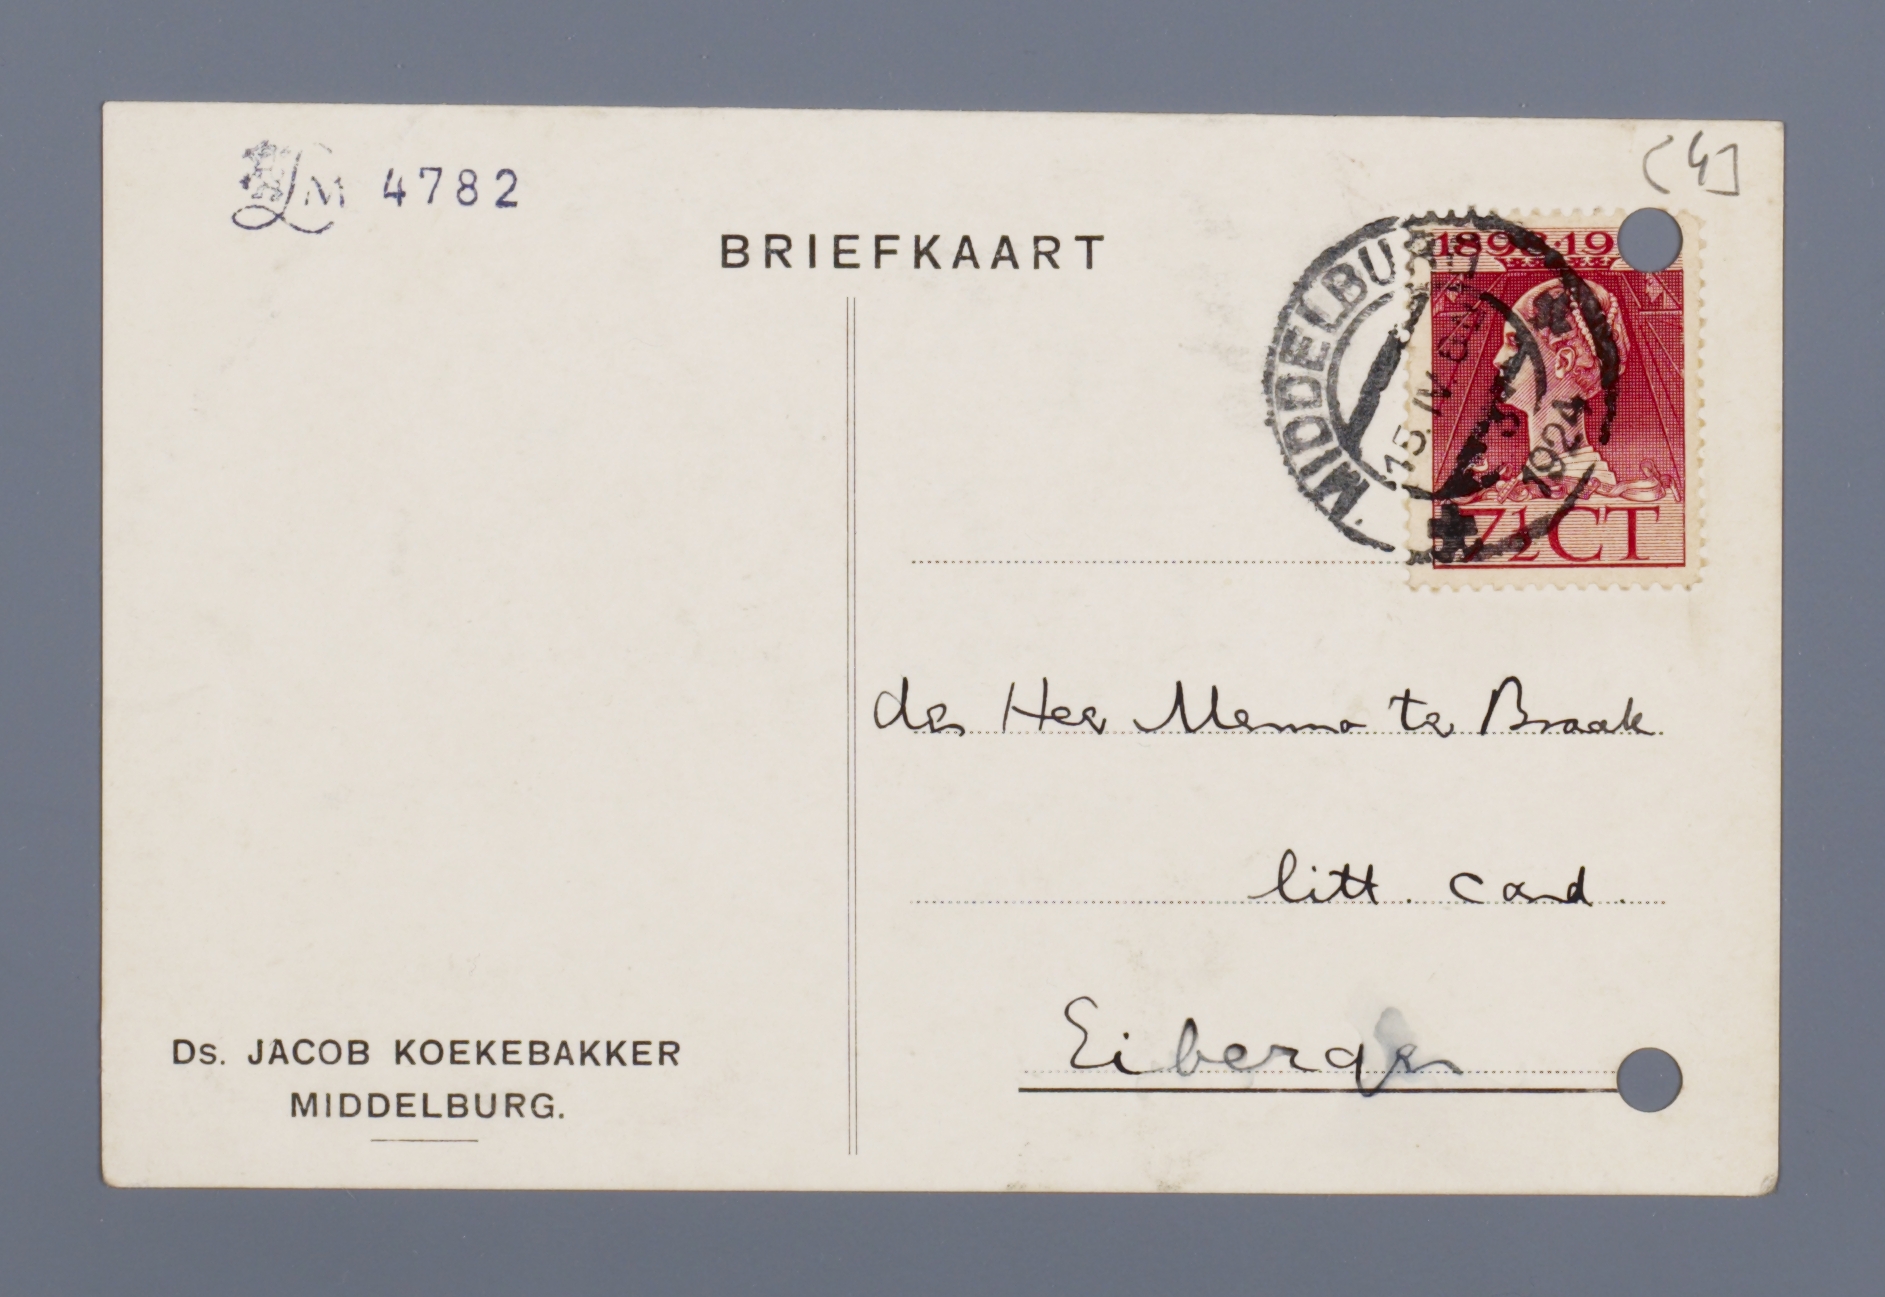 LM 4782
(4)
BRIEFKAART
MIDDELBURG
15.IV
1924
7½ CT
den Heer Menno ter Braak
litt. cand.
Eibergen
Ds. JACOB KOEKEBAKKER
MIDDELBURG.